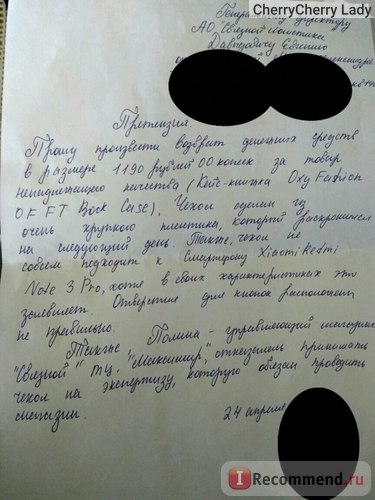 CherryCherry Lady
Генеральному директору
АО "Связной Логистика"
Давтуовичу Евгению
Претензия.
Прошу произвести возврат денежных средств
в размере 1190 рублей 00 копеек за товар
ненадлежащего качества (Кейс-книжка Oxy Fashion
OF FT Book Case). Чехол сделан из
очень хрупкого пластика, который раскрошился
на следующий день. Также, чехол не
совсем подходит к смартфону Xiaomi Redmi
Note 3 Pro, хотя в своих характеристиках это
заявляет. Отверстие для кнопок расположены
не правильно.
Также Полина - управляющий магазина
"Связной" ТЦ "Максимир", отказалась принимать
чехол на экспертизу, которую обязан проводить
магазин.
24 апреля
I Recommend.ru